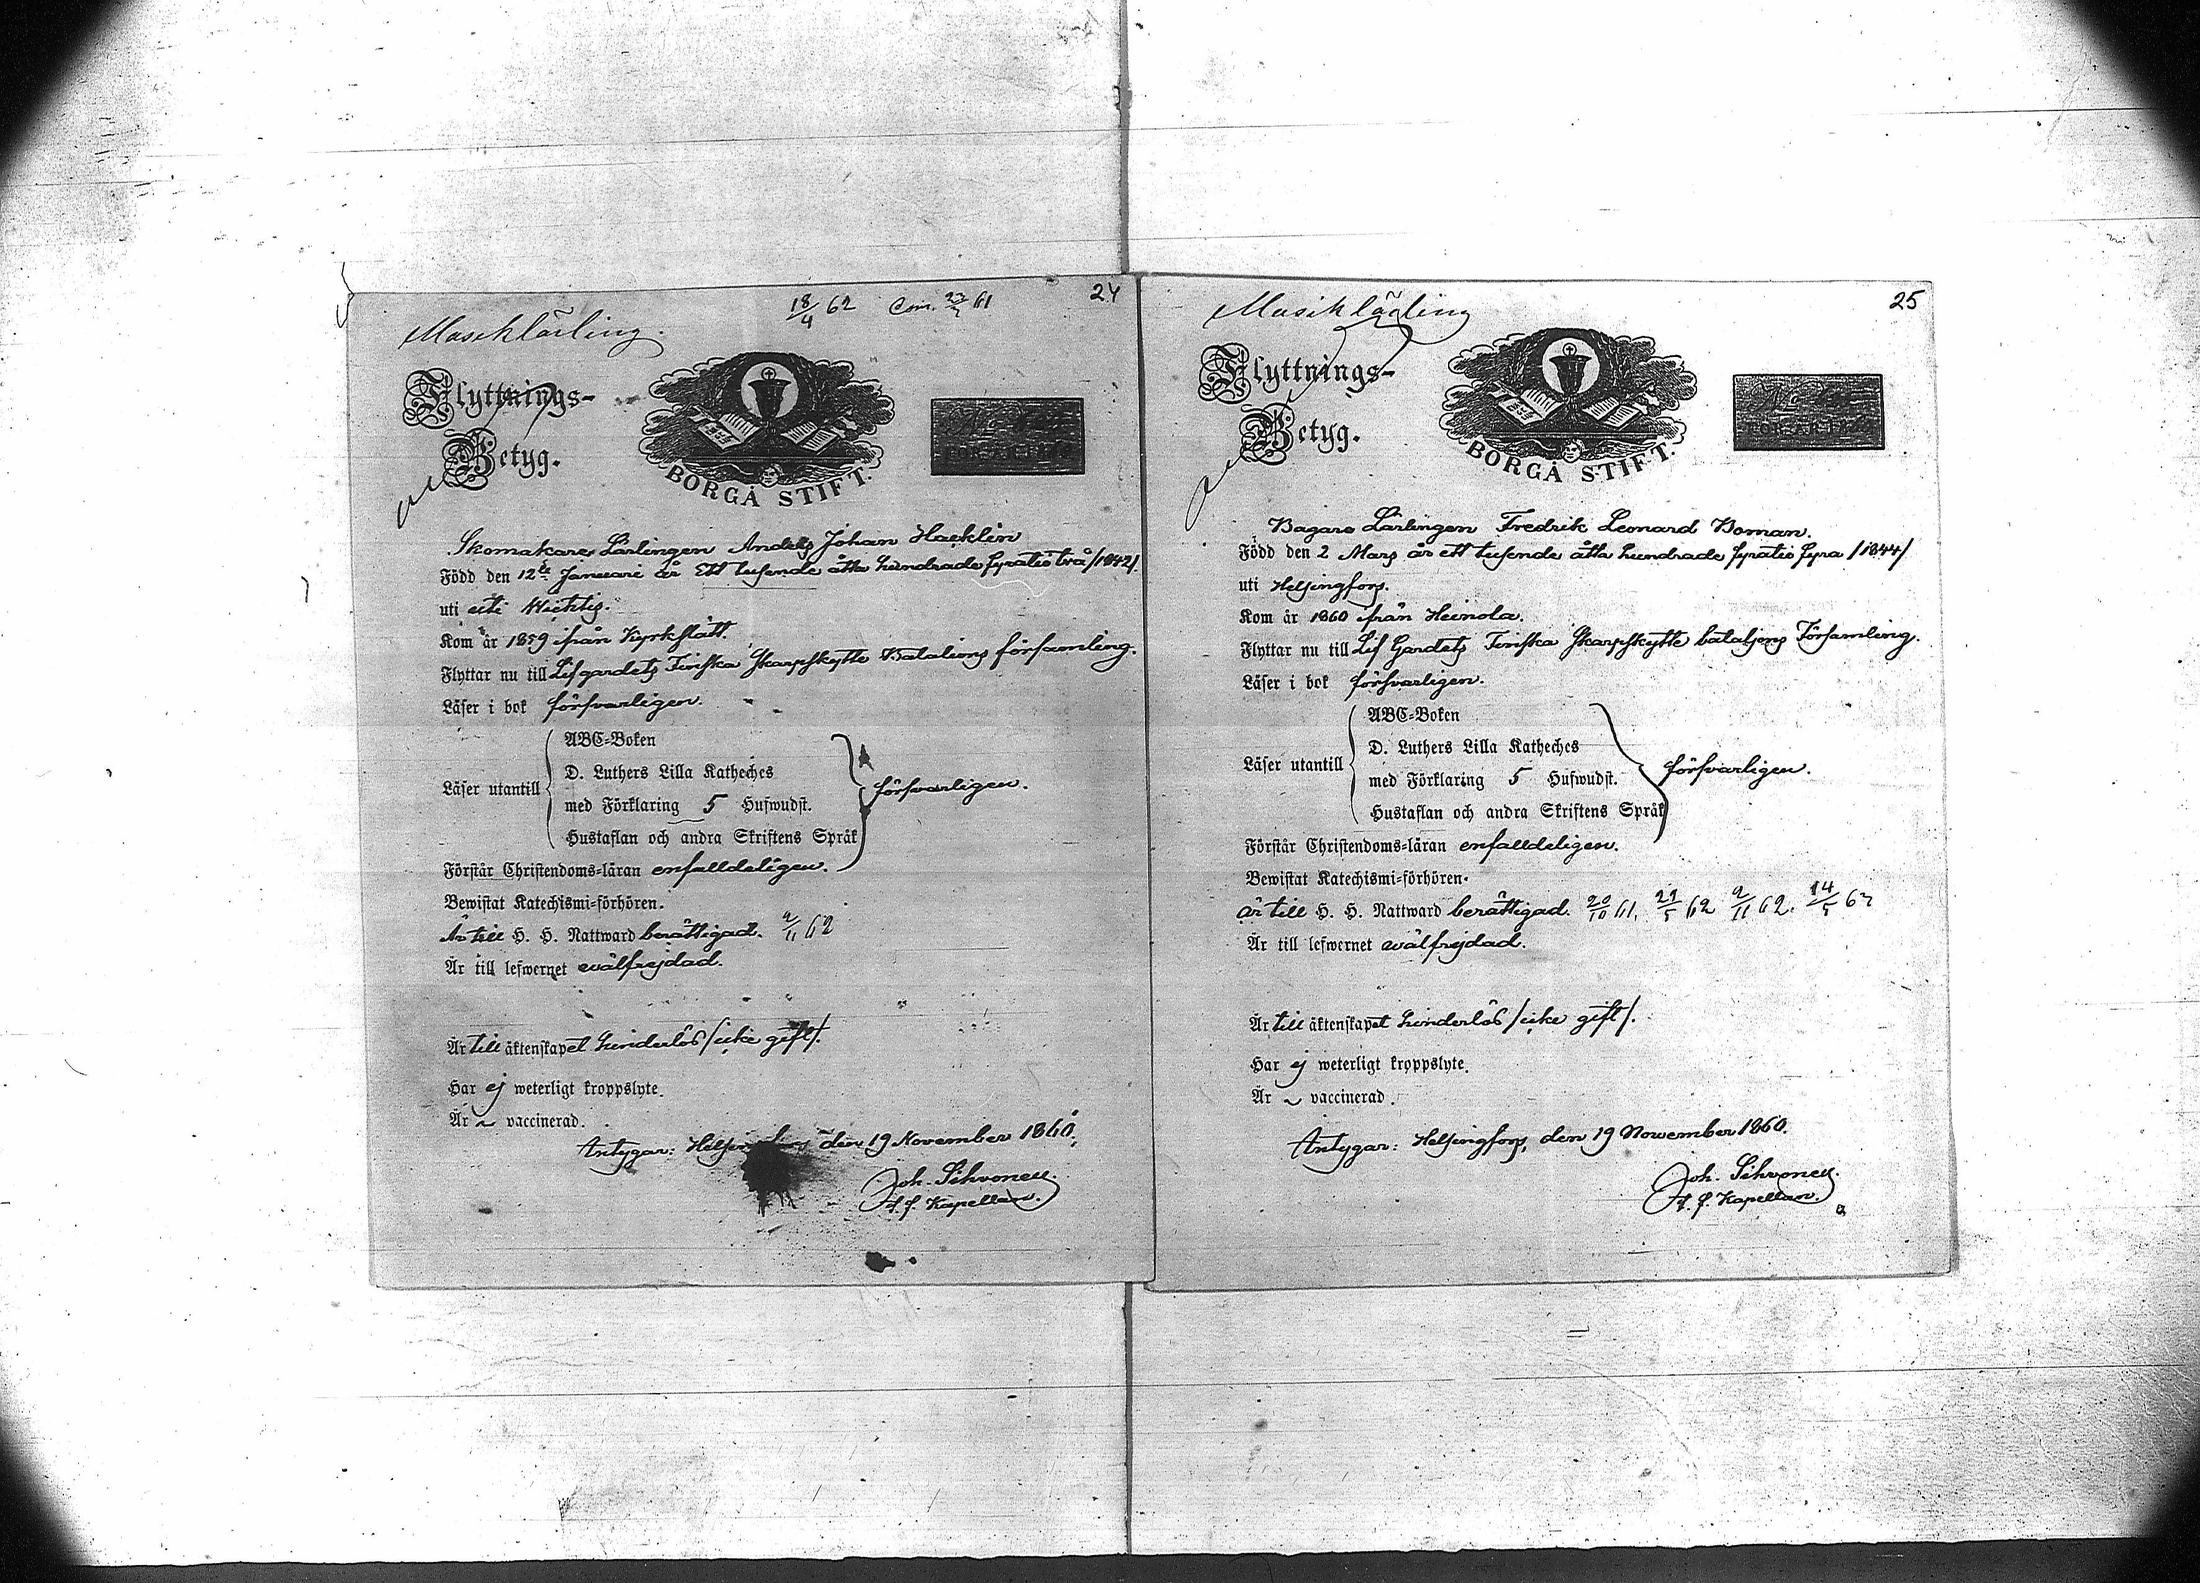 18/4 62 Com. 61
24
Musiklärling.
Flyttnings-
Betyg.
BORGÅ STIFT.
FÖR ÅR
Skomakare Lärlingen Anders Johan Hacklin
Född den 12te Januarii år Ett tusende åtta hundrade fyratio två /1842/.
uti uti Wichtis.
Kom år 1859 ifrån Kyrkslätt.
Flyttar nu till Lifgardets Finska Skarpskytte Bataljons församling.
Läser i bok försvarligen.
Läser utantill
ABC-Boken
D. Luthers Lilla Katheches
med Förklaring 5 Hufwudst.
Hustaflan och andra Skriftens Språk
försvarligen.
Förstår Christendoms-läran enfalldeligen.
Bewistat Katechismi-förhören.
Är till H. H. Nattward berättigad. 2/11 62
Är till lefwernet wälfrejdad.
Är till äktenskapet hinderlös /icke gift/.
Har ej weterligt kroppslyte.
Är vaccinerad.
Antygar: den 19 November 1860.
Joh. Sihvonen.
t. f. Kapellan.
25
Musiklärling
Flyttnings-
Betyg.
BORGÅ STIFT.
FÖR ÅR
Bagare Lärlingen Fredrik Leonard Boman.
Född den 2 Mars år ett tusende åtta hundrade fyratio fyra /1844/
uti Helsingfors.
Kom år 1860 ifrån Heinola.
Flyttar nu till Lif Gardets Finska Skarpskytte bataljons Församling.
Läser i bok försvarligen.
Läser utantill
ABC-Boken
D. Luthers Lilla Katheches
med Förklaring 5 Hufwudst.
Hustaflan och andra Skriftens Språk
försvarligen.
Förstår Christendoms-läran enfalldeligen.
Bewistat Katechismi-förhören.
är till H. H. Nattward berättigad. 20/10 61, 29/5 62 2/11 62. 14/5 63
Är till lefwernet wälfrejdad.
Är till äktenskapet hinderlös /icke gift/.
Har ej weterligt kroppslyte.
Är vaccinerad.
Antygar: Helsingfors, den 19 November 1860.
Joh. Sihvonen.
t. f. Kapellan.